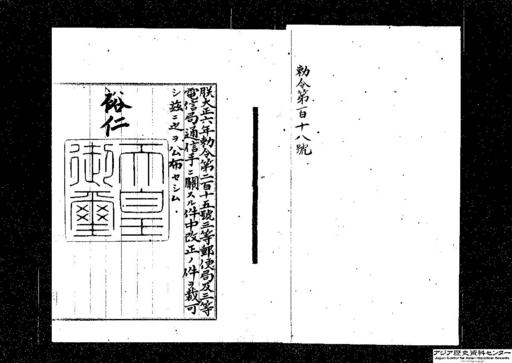 勅令第一百十八號
朕大正六年勅令第二百十五號三等郵便局及三等
電信局通信手ニ關スル件中改正ノ件ヲ裁可
シ茲ニ之ヲ公布セシム
裕仁
天皇
御璽
アジア歴史資料センター
Japan Center for Asian Historical Records